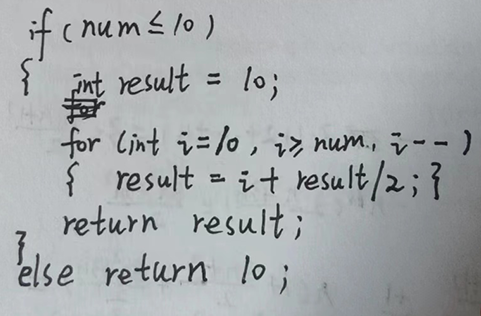 if (num ≤ 10)
{ int result = 10;
for (int i=10, i≥ num, i--)
{ result = i + result/2; }
return result;
}
else return 10;